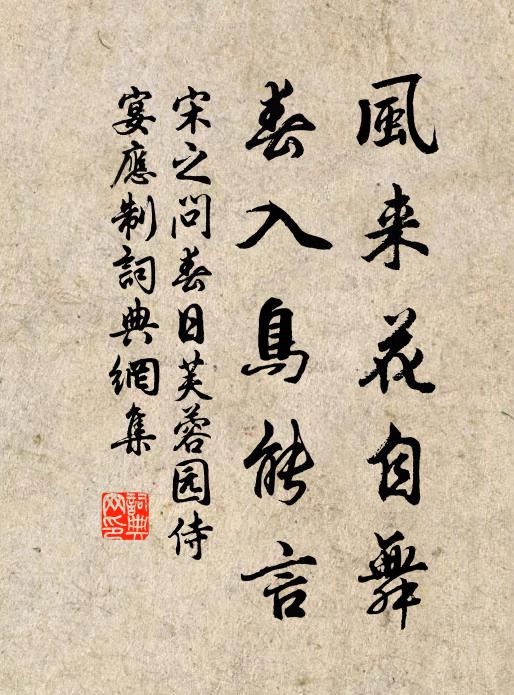 風来花自舞
春入鳥能言
宋之问春日芙蓉园侍
宴應制詞典網集
詞典网印